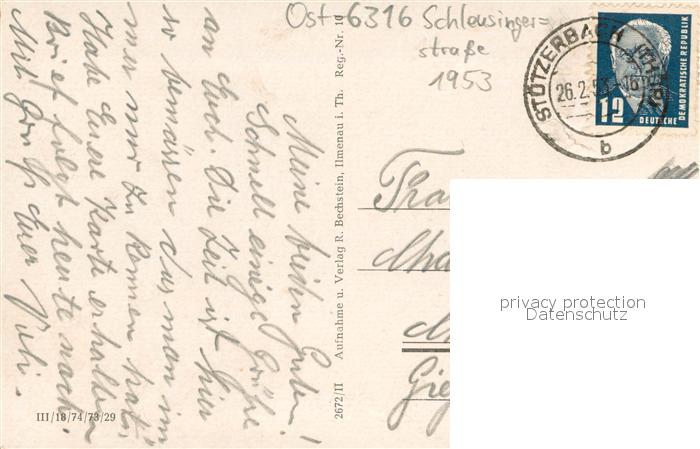 Ost-6316 Schleusinger=
straße
1953
STÜTZERBACH
26.2.53
b
12
DEUTSCHE
DEMOKRATISCHE REPUBLIK
Meine beiden Guten!
Schnell einige Grüße
an Euch. Die Zeit ist hier
so bemessen das man im
mer nur zu rennen hat.
Habe Eure Karte erhalten
Brief folgt heute nach.
Mit Gruß Euer
2672/II Aufnahme u. Verlag R. Bechstein, Ilmenau i. Th. Reg.-Nr. 10
III/18/74/73/29
privacy protection
Datenschutz